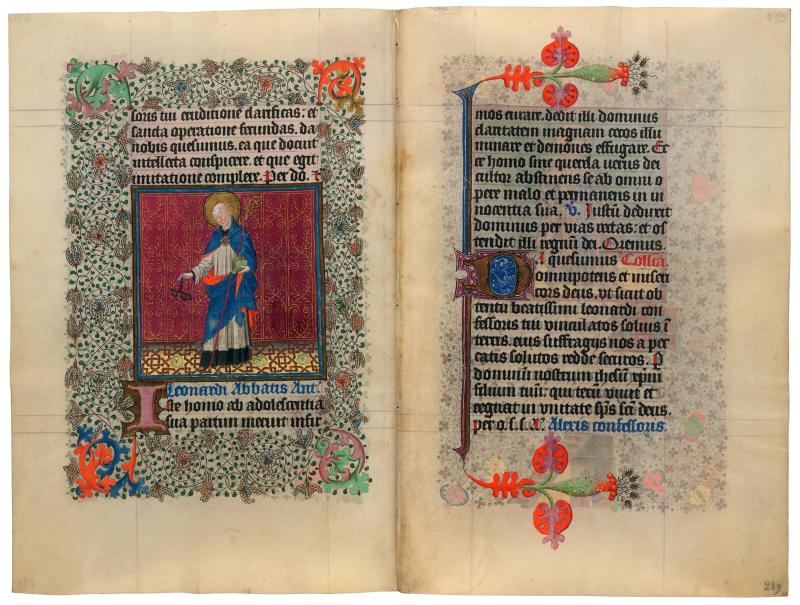 soris tui eruditione clarificas: et
sancta operatione fecundas, da
nobis quesumus, ea que docuit
intellectu conspicere, et que egit
imitatione complere. Per dn̄. ꝛ
Leonardi Abbatis Ant.
Iste homo ab adolescentia
sua partum meruit infir
mos curare, dedit illi dominus
claritatem magnam cecos illu
minare et demones effugare. Ec
ce homo sine querela verus dei
cultor abstinens se ab omni o
pere malo et permanens in in
nocentia sua. V. Justū deduxit
dominus per vias rectas: et os
tendit illi regnū dei. Oremus.
A quesumus Collcā.
omnipotens et miseri
cors deus, vt sicut ob
tentu beatissimi leonardi con
fessoris tui vinculatos soluis ī
terris, eius suffragijs nos a pec
catis solutos redde securos. P
dominū nostrum ihesū xp̄m
filium tuū: qui tecū viuit et
regnat in vnitate sp̄s scī deus.
per o. s. s. A. Alexis confessoris.
289